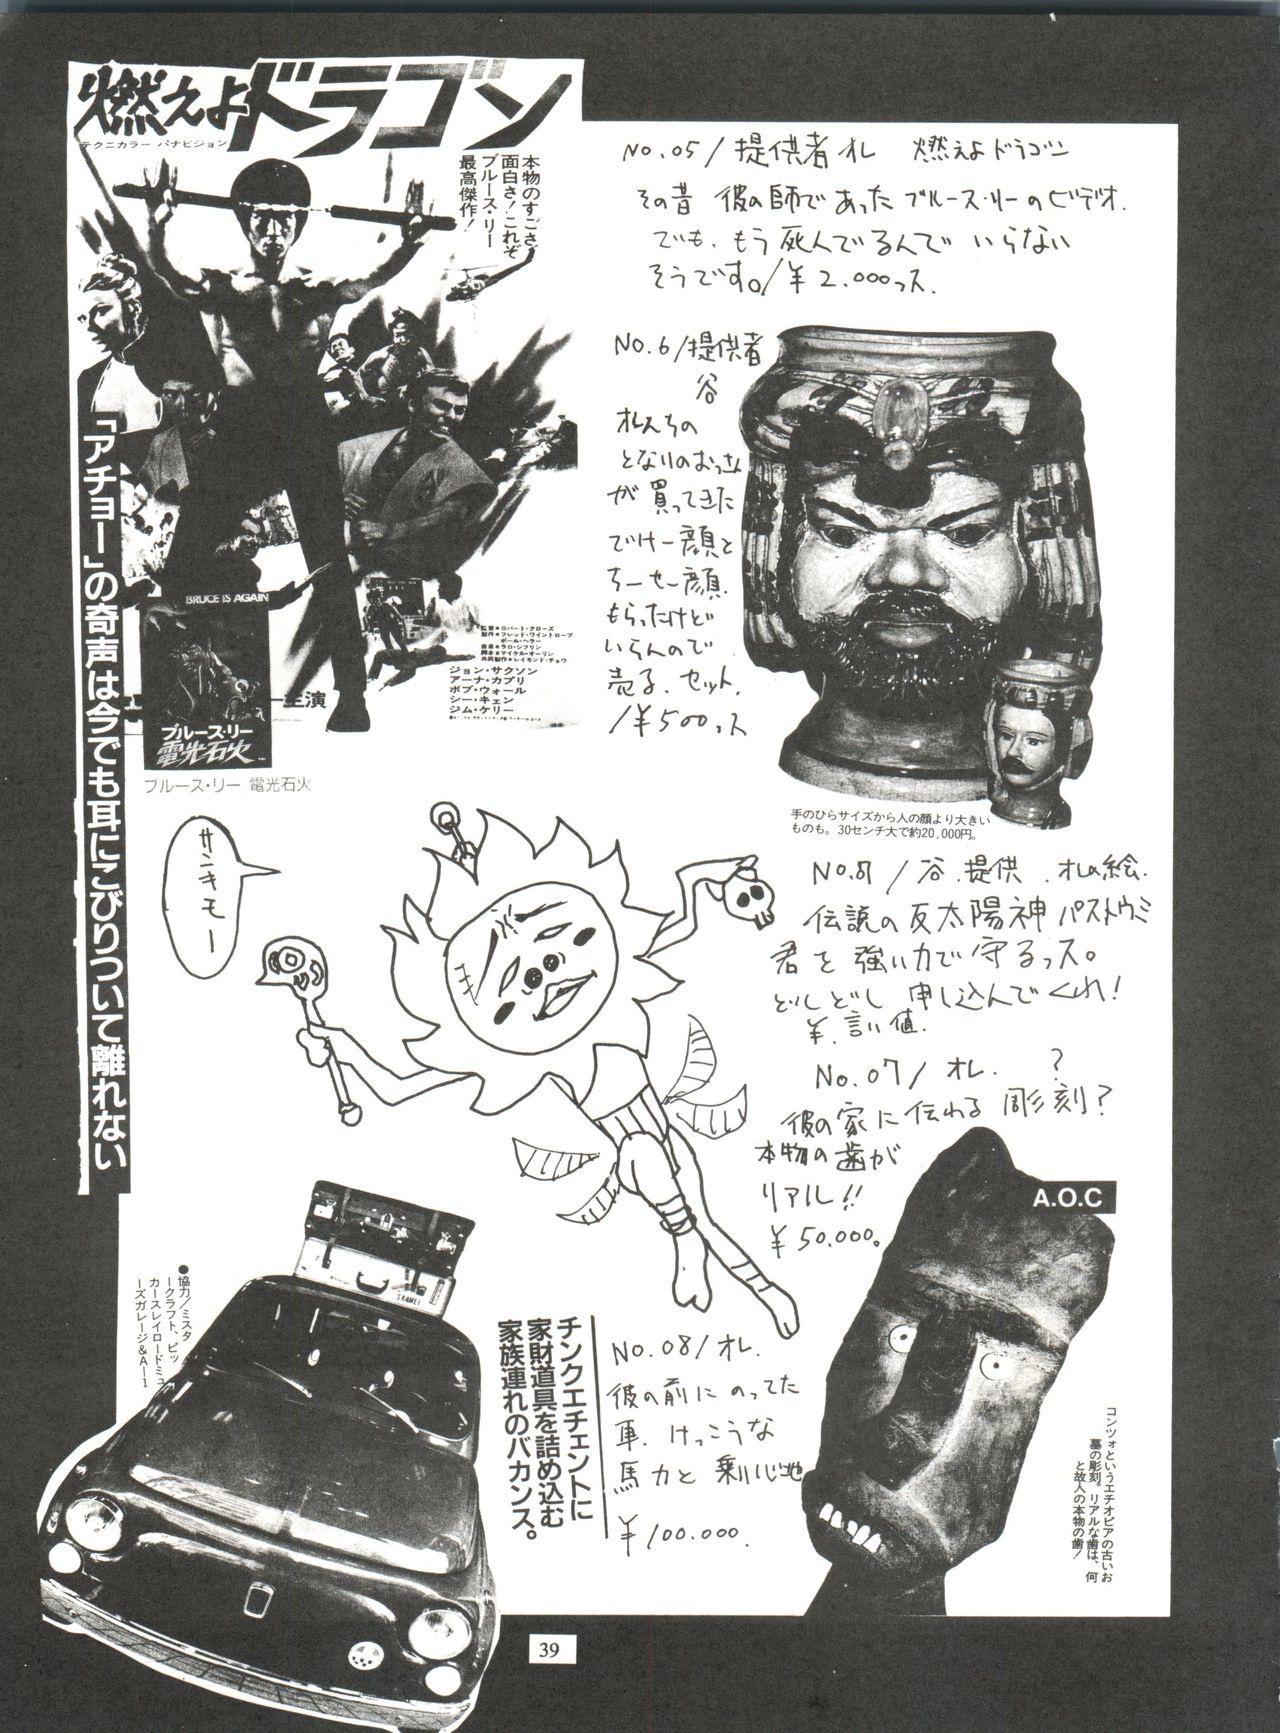 燃えよドラゴン
テクニカラー パナビジョン
本物のすごさ、
面白さ！これぞ
ブルース・リー
最高傑作！
「アチョー」の奇声は今でも耳にこびりついて離れない
BRUCE IS AGAIN
監督●ロバート・クローズ
製作●フレッド・ワイントローブ
ポール・ヘラー
音楽●ラロ・シフリン
脚本●マイケル・オーリン
共同製作●レイモンド・チョウ
ジョン・サクソン
アーナ・カプリ
ボブ・ウォール
シー・キェン
ジム・ケリー
ー主演
ブルース・リー
電光石火
ブルース・リー 電光石火
No.05/提供者オレ 燃えよドラゴン
その昔 彼の師であったブルース・リーのビデオ.
でも、もう死んでるんで いらない
そうです。/¥2.000っス.
No.6/提供者
谷
オレんちの
となりのおっさん
が買ってきた
でけー顔と
ちーせー顔.
もらったけど
いらんので
売る.セット.
/¥500っス
手のひらサイズから人の顔より大きい
ものも。30センチ大で約20,000円。
サンキモー
No.87/谷.提供.オレの絵.
伝説の反太陽神パストウミ
君を強い力で守るっス。
どしどし申し込んでくれ!
¥.言い値.
No.07/オレ. ?
彼の家に伝わる彫刻?
本物の歯が
リアル!!
¥50.000。
A.O.C
コンツォというエチオピアの古いお
墓の彫刻。リアルな歯は、何
と故人の本物の歯！
●協力／ミスタ
ークラフト、ピッ
カースレイロードミュ
ーズガレージ&A—1
SKAMEI
チンクエチェントに
家財道具を詰め込む
家族連れのバカンス。
No.08/オレ.
彼の前にのってた
車.けっこうな
馬力と乗り心地
¥100.000.
39